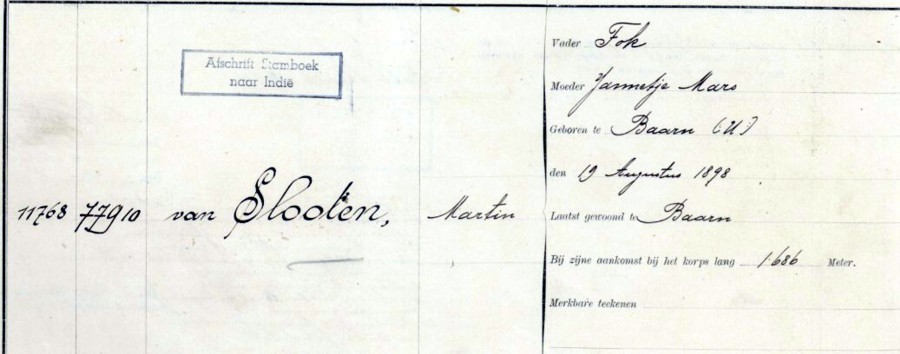 Afschrift Stamboek
naar Indië
11768 77910 van Slooten, Martin
Vader Fok
Moeder Jannetje Mars
Geboren te Baarn (U)
den 19 Augustus 1898
Laatst gewoond te Baarn
Bij zijne aankomst bij het korps lang 1.686 Meter.
Merkbare teekenen